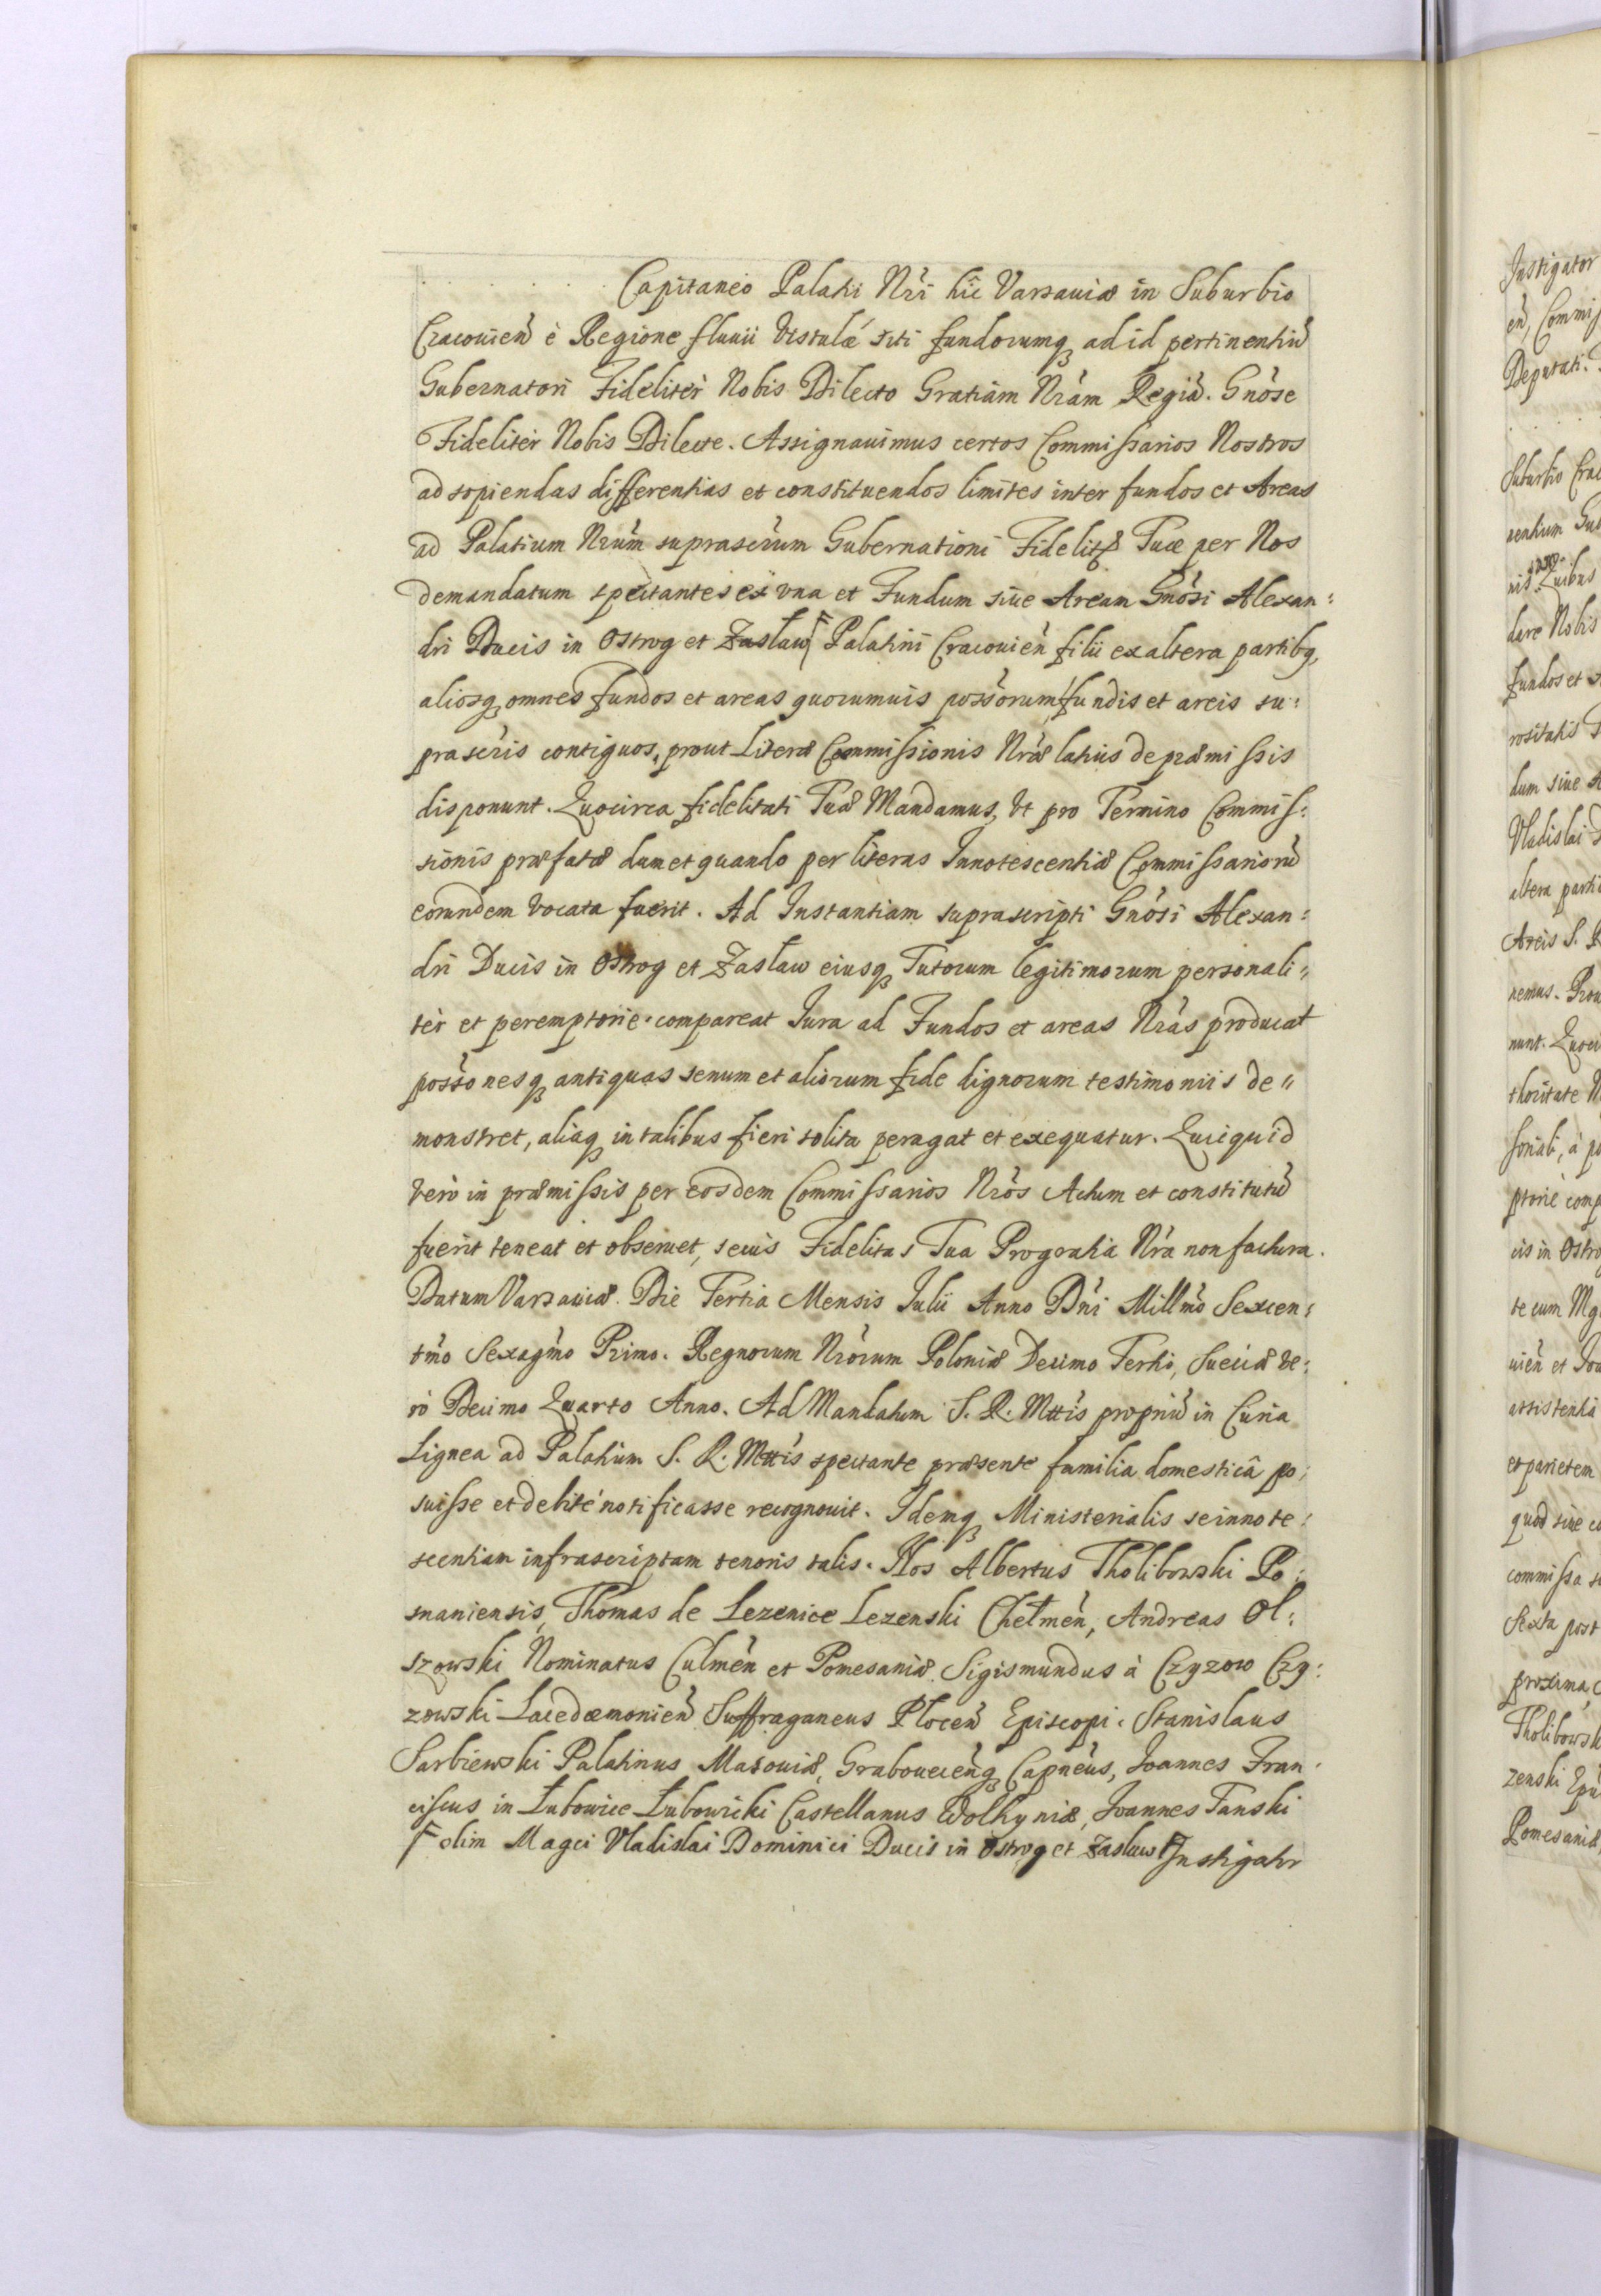 . . . . . . . Capitaneo Palatii Nri hic Varsaviæ in Suburbio
Cracouien è Regione fluuii Vistulæ siti fundorumq ad id pertinentiu
Gubernatori Fideliter Nobis Dilecto Gratiam Nram Regia. Gnose
Fideliter Nobis Dilecte. Assignauimus certos Commissarios Nostros
ad sopiendas differentias et constituendos limites inter fundos et Areas
ad Palatium Nrum suprascrum Gubernationi Fidelitis Tuæ per Nos
demandatum spectantes ex vna et Fundum siue Aream Gnosi Alexan:
dri Ducis in Ostrog et Zasław Palatini Cracouien filii ex altera partibq,
aliosq omnes fundos et areas quorumuis possorum fundis et areis su:
prascris contiguos, prout Literæ Commissionis Nræ latius de præmissis
disponunt. Quocirca fidelitati Tuæ Mandamus, Vt pro Termino Commis:
sionis præfatæ dum et quando per literas Innotescentiæ Commissarioru
eorundem vocata fuerit. Ad Instantiam suprascripti Gnosi Alexan:
dri Ducis in Ostrog et Zasław eiusq Tutorum legitimorum personali"
ter et peremptorie compareat Iura ad Fundos et areas Nras producat
possonesq antiquas senum et aliorum fide dignorum testimoniis de"
monstret, aliaq in talibus fieri solita peragat et exequatur. Quicquid
vero in præmissis per eosdem Commissarios Nros Actum et constitutu
fuerit teneat et obseruet, secus Fidelitas Tua Progratia Nra non factura.
Datum Varsauiæ. Die Tertia Mensis Iulii Anno Dni Millmo Sexcen:
tmo Sexagmo Primo. Regnorum Nrorum Poloniæ Decimo Tertio, Sueciæ ve:
ro Decimo Quarto Anno. Ad Mandatum S. R. Mttis propriu in Curia
Lignea ad Palatium S. R. Mttis spectante præsente familia domesticâ po:
suisse et debite notificasse recognouit. Idemq Ministerialis se innote:
scentiam infrascriptam tenoris talis. Nos Albertus Tholibowski Po:
snaniensis, Thomas de Lezenice Lezenski Chełmen, Andreas Ol:
szowski Nominatus Culmen et Pomesaniæ. Sigismundus à Czyzow Czy:
zowski Lacedæmonien Suffraganeus Plocen Episcopi. Stanislaus
Sarbiewski Palatinus Masouiæ, Grabouecenq Capneus, Joannes Fran:
ciscus in Łubowice Łubowicki Castellanus Wolhyniæ, Joannes Tanski
olim Magci Vladislai Dominici Ducis in Ostrog et Zasław Instigator
Instigator
en, Commis
Deputati.
Suburbio Crac
nentium Gub
nis. Quibus
dare Nobis
fundos et
rositatis
dum siue A
Vladislai D
altera parti
Areis S. R
nemus. Prou
nunt. Quoci
thoritate N
sonali, à
ptorie comp
cis in Ostro
te cum Mg
uien et Joa
assistentia
et parietem
quod siue
commissa
Sexta post
proxima
Tholibowsk
zenski Epu
Pomesaniæ